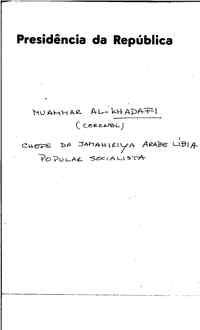 Presidência da República
MUAMMAR AL-KHADAFI
(CORONEL)
CHEFE DA JAMAHIRIYA ARABE LÍBIA
POPULAR SOCIALISTA